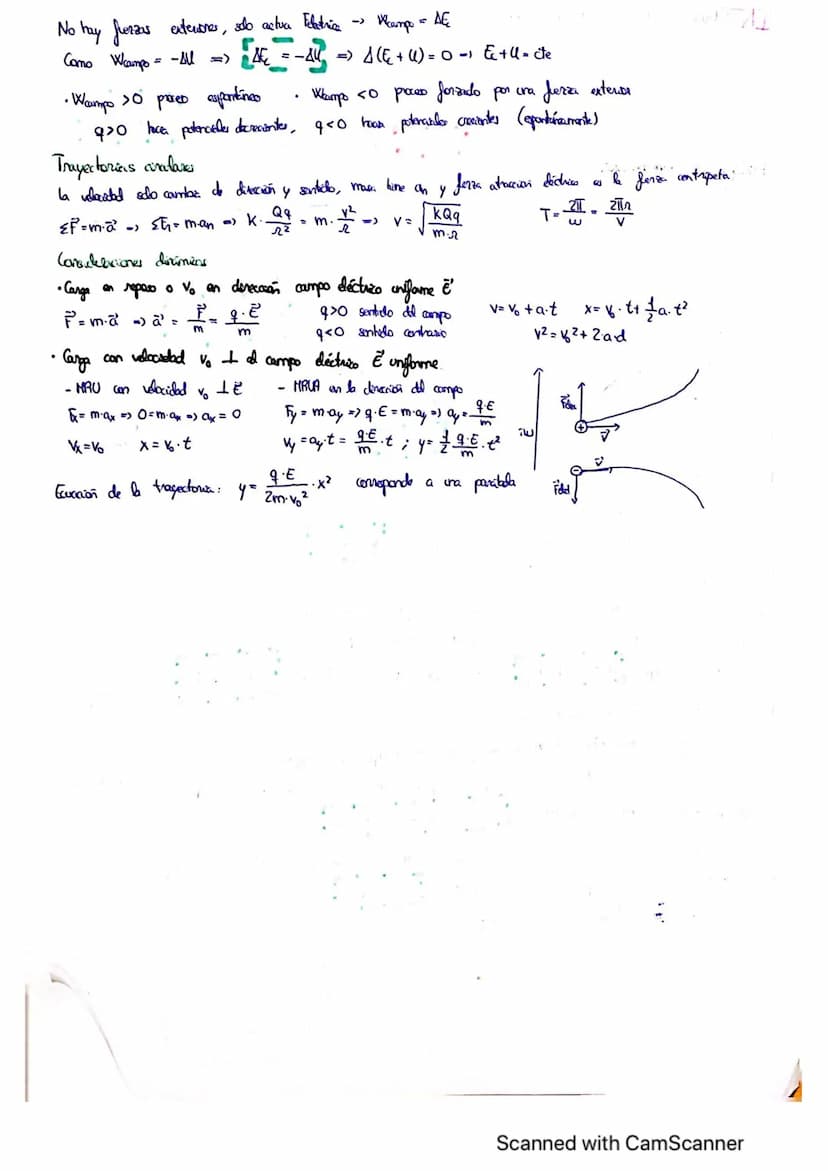 No hay fuerzas exteriores, solo actua Feléctrica -> Wcampo = ΔEc
Como Wcampo = -ΔU => ΔEc = -ΔU => Δ(Ec + U) = 0 -> Ec + U = cte
· Wcampo > 0 proceso espontáneo · Wcampo < 0 proceso forzado por una fuerza exterior
q>0 hacia potenciales decrecientes, q<0 hacia potenciales crecientes (espontáneamente)
Trayectorias circulares
La velocidad solo cambia de dirección y sentido, masa tiene an y fuerza atracción eléctrica es la fuerza centrípeta:
ΣF⃗ = m·a⃗ -> ΣFn = m·an => K · Qq/r² = m · v²/r => v = √(KQq/(m·r)) T = 2π/ω = 2πr/v
Consideraciones dinámicas
· Carga en reposo o v₀ en dirección campo eléctrico uniforme E⃗
F⃗ = m·a⃗ => a⃗ = F⃗/m = q·E⃗/m q>0 sentido del campo v = v₀ + a·t x = v₀·t + 1/2 a·t²
q<0 sentido contrario v² = v₀² + 2ad
· Carga con velocidad v₀ ⊥ al campo eléctrico E⃗ uniforme
- MRU con velocidad v₀ ⊥ E⃗ - MRUA en la dirección del campo
Fx = m·ax => 0 = m·ax => ax = 0 Fy = m·ay => q·E = m·ay => ay = q·E/m
Vx = V₀ x = v₀·t Vy = ay·t = q·E/m · t ; y = 1/2 q·E/m · t²
Ecuación de la trayectoria: y = q·E/(2m·v₀²) · x² corresponde a una parábola
E⃗
F⃗elec
+
v⃗
-
v⃗
F⃗elec
Scanned with CamScanner